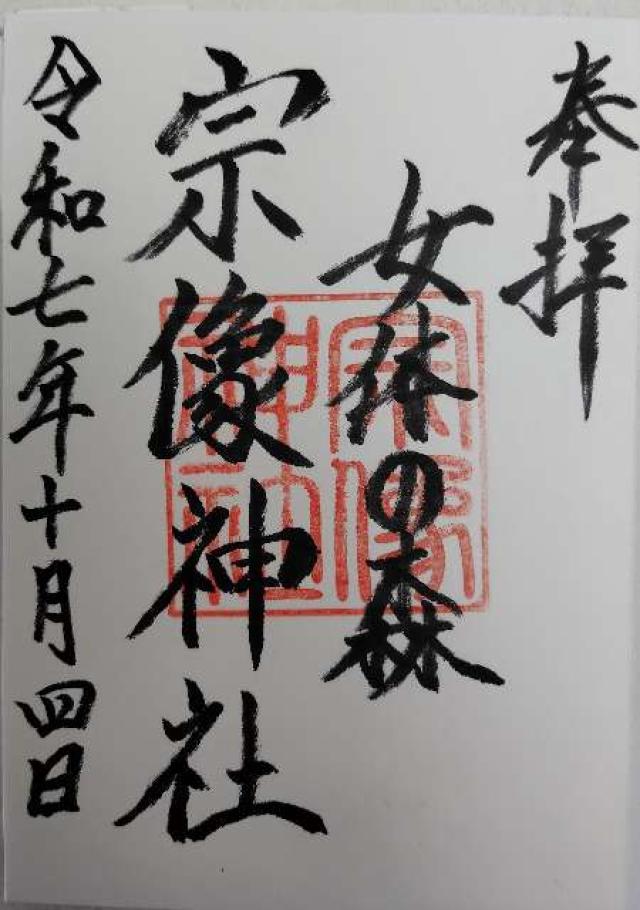 奉拝
女体の森
宗像神社
令和七年十月四日
宗像
神社